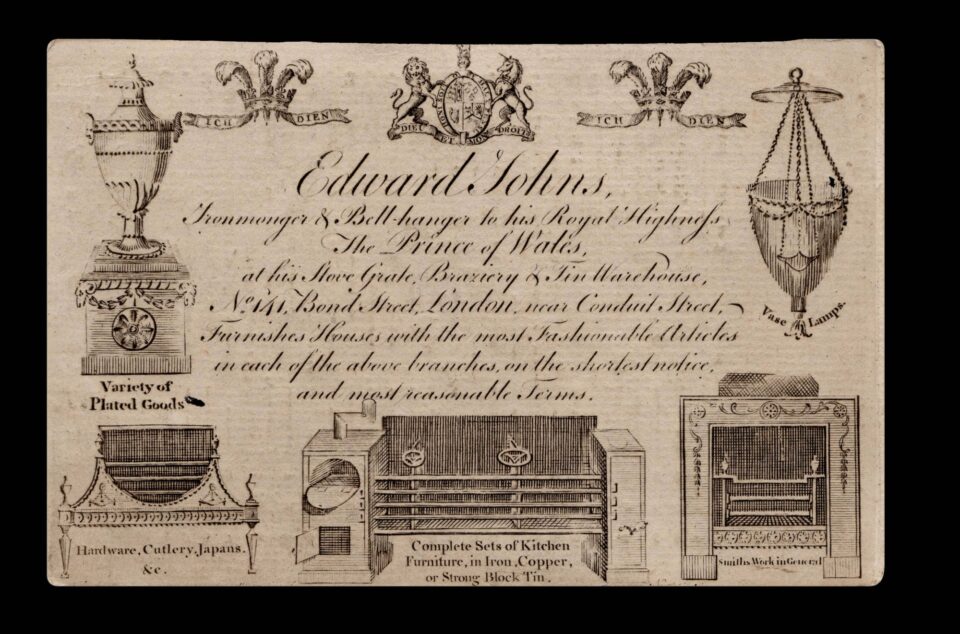 ICH DIEN
DIEU ET MON DROIT
ICH DIEN
Edward Johns,
Ironmonger & Bell-hanger to his Royal Highneſs
The Prince of Wales,
at his Stove Grate, Braziery & Tin Warehouse,
No. 141, Bond Street, London, near Conduit Street,
Furnishes Houses with the most Fashionable Articles
in each of the above branches, on the shortest notice,
and most reasonable Terms.
Vase Lamps.
Variety of
Plated Goods
Hardware, Cutlery, Japans.
&c.
Complete Sets of Kitchen
Furniture, in Iron, Copper,
or Strong Block Tin.
Smiths Work in General